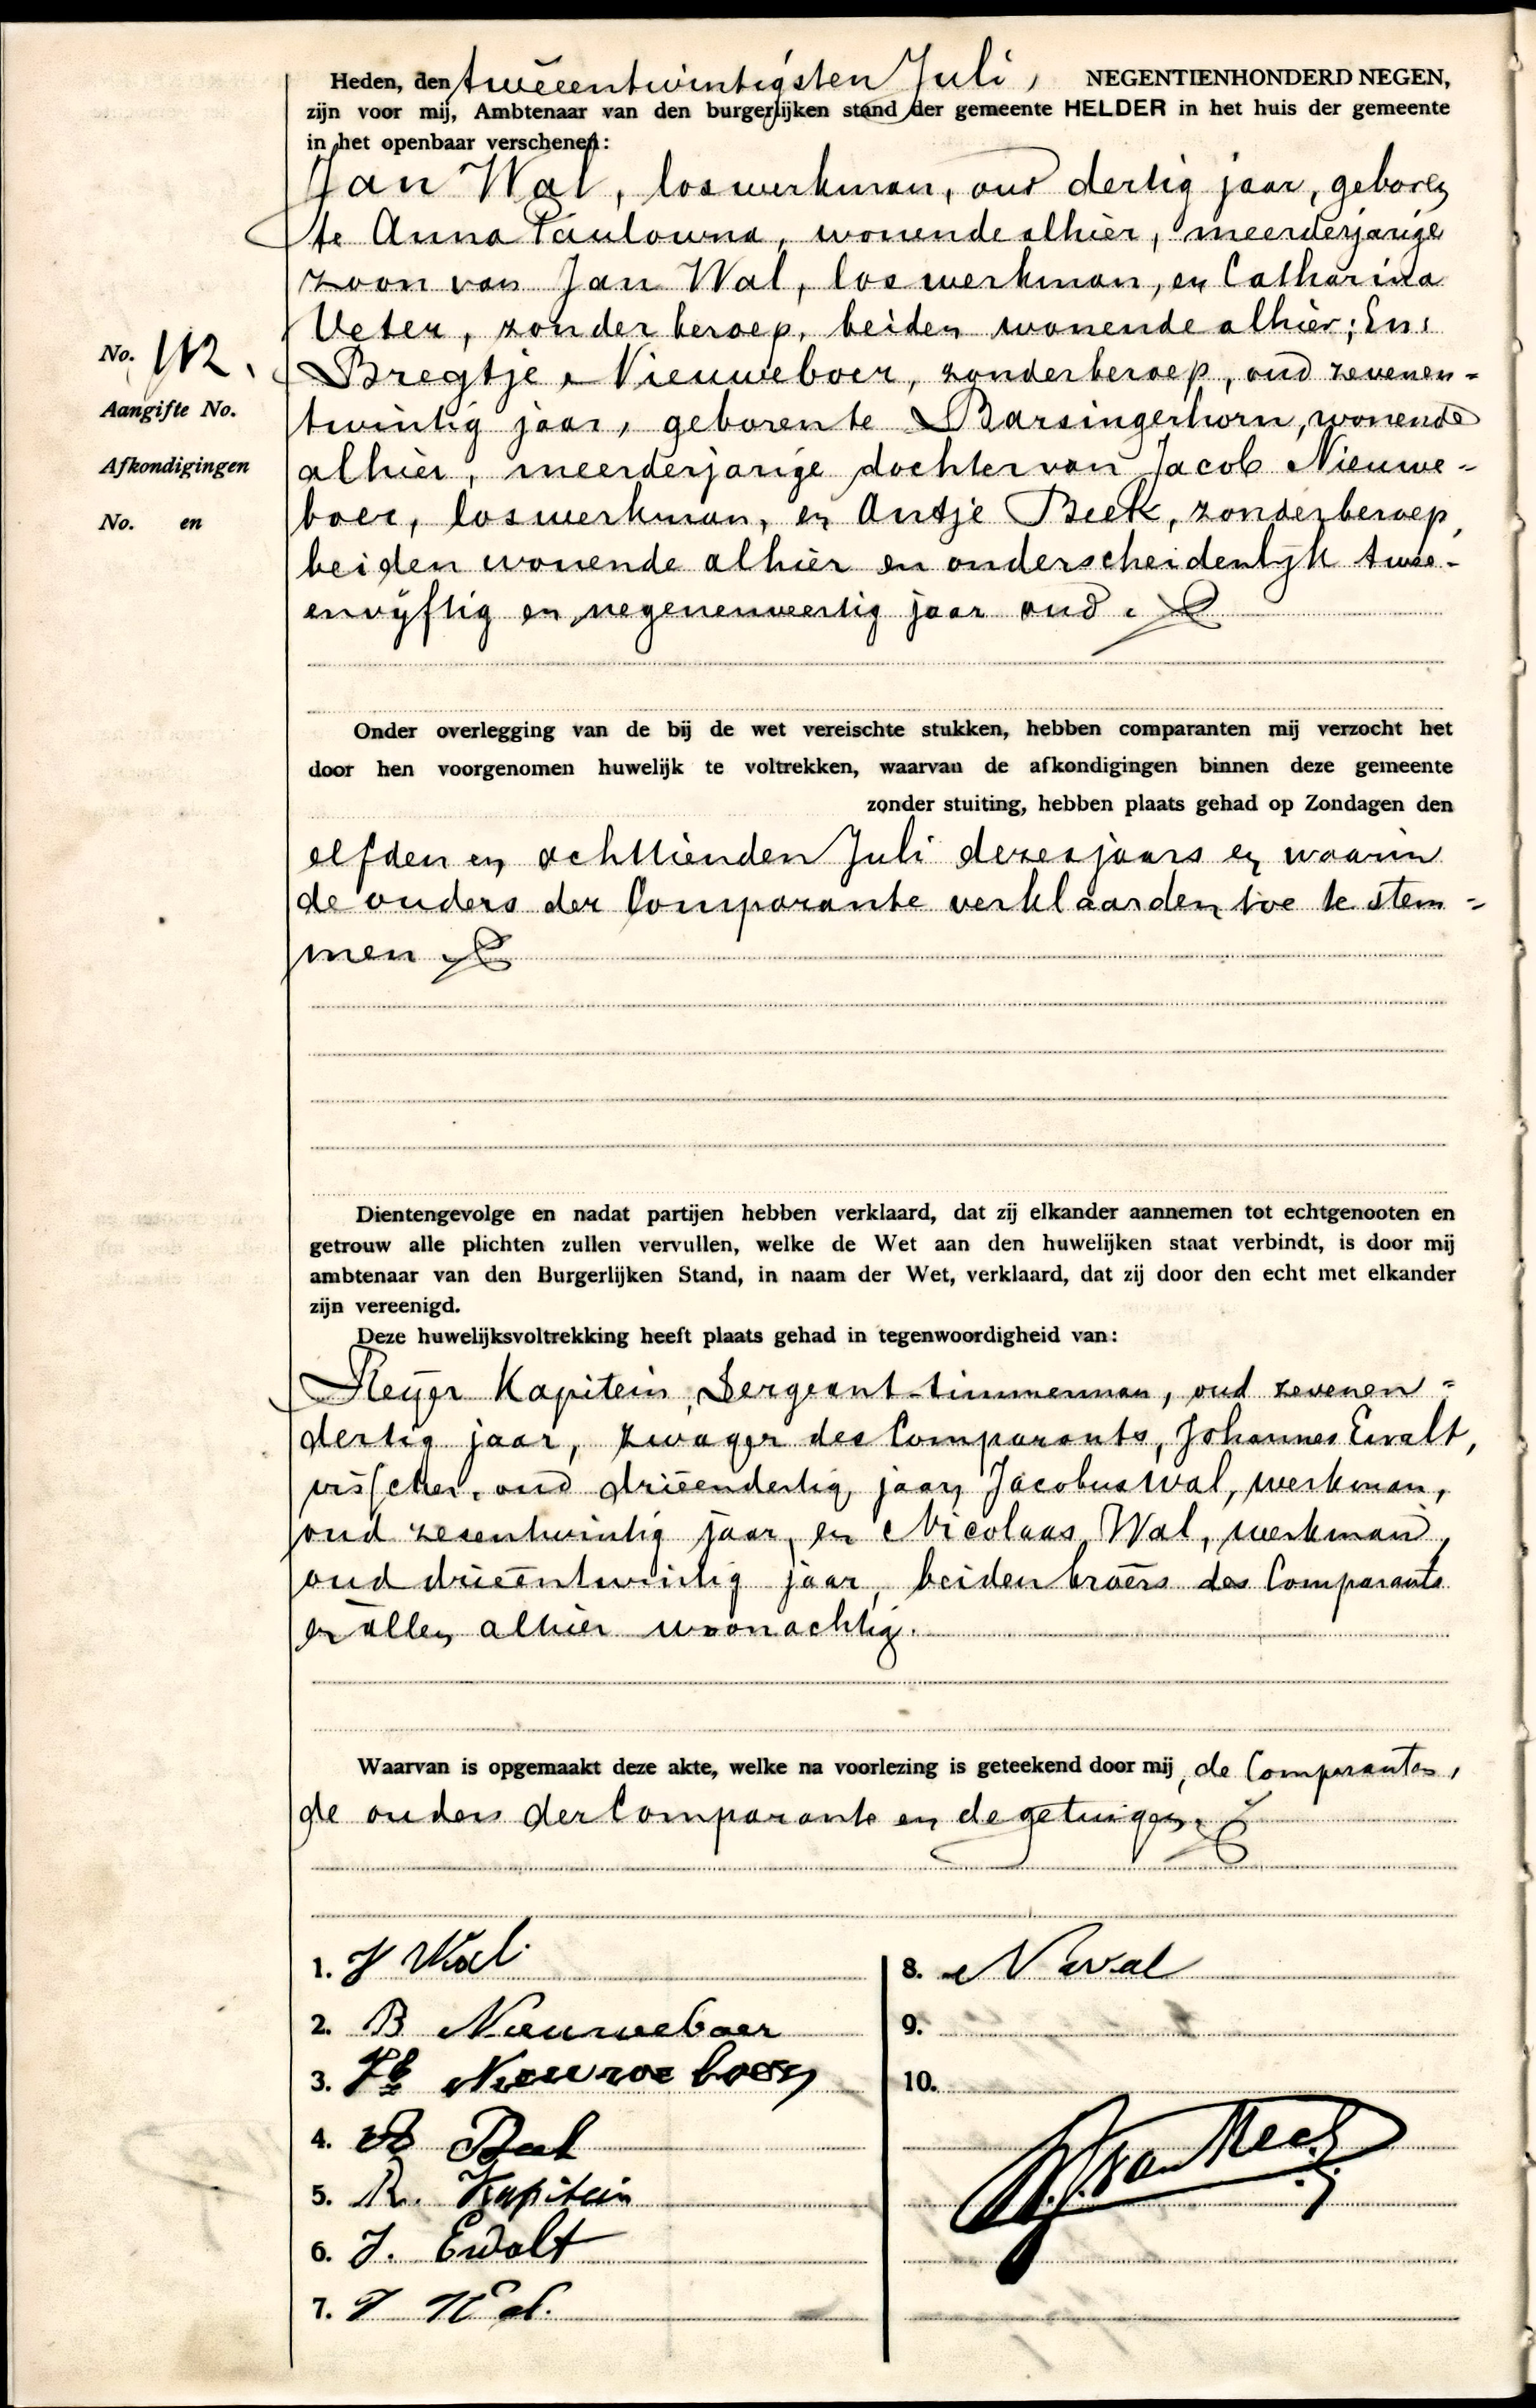 Heden, den tweeentwintigsten Juli, NEGENTIENHONDERD NEGEN,
zijn voor mij, Ambtenaar van den burgerlijken stand der gemeente HELDER in het huis der gemeente
in het openbaar verschenen:
Jan Wal, loswerkman, oud dertig jaar, geboren
te Anna Paulowna, wonende alhier, meerderjarige
zoon van Jan Wal, loswerkman, en Catharina
Veter, zonder beroep, beiden wonende alhier; En:
No. 112.
Bregtje Nieuweboer, zonder beroep, oud zevenen-
Aangifte No.
twintig jaar, geboren te Barsingerhorn, wonende
Afkondigingen
alhier, meerderjarige dochter van Jacob Nieuwe-
No. en
boer, loswerkman, en Antje Beek, zonder beroep,
beiden wonende alhier en onderscheidenlijk twee-
envijftig en negenenveertig jaar oud.
Onder overlegging van de bij de wet vereischte stukken, hebben comparanten mij verzocht het
door hen voorgenomen huwelijk te voltrekken, waarvan de afkondigingen binnen deze gemeente
zonder stuiting, hebben plaats gehad op Zondagen den
elfden en achttienden Juli dezes jaars en waarin
de ouders der Comparante verklaarden toe te stem-
men
Dientengevolge en nadat partijen hebben verklaard, dat zij elkander aannemen tot echtgenooten en
getrouw alle plichten zullen vervullen, welke de Wet aan den huwelijken staat verbindt, is door mij
ambtenaar van den Burgerlijken Stand, in naam der Wet, verklaard, dat zij door den echt met elkander
zijn vereenigd.
Deze huwelijksvoltrekking heeft plaats gehad in tegenwoordigheid van:
Reijer Kapitein, Sergeant-timmerman, oud zevenen-
dertig jaar, zwager des Comparants, Johannes Ewalt,
visscher, oud drieendertig jaar, Jacobus Wal, werkman,
oud zesentwintig jaar, en Nicolaas Wal, werkman,
oud drieëntwintig jaar, beiden broers des Comparants
en allen alhier woonachtig.
Waarvan is opgemaakt deze akte, welke na voorlezing is geteekend door mij, de Comparanten,
de ouders der Comparante en de getuigen.
1. J Wal
2. B Nieuweboer
3. Jb Nieuweboer
4. A Beek
5. R. Kapitein
6. J. Ewalt
7. J Wal.
8. N Wal
9.
10.